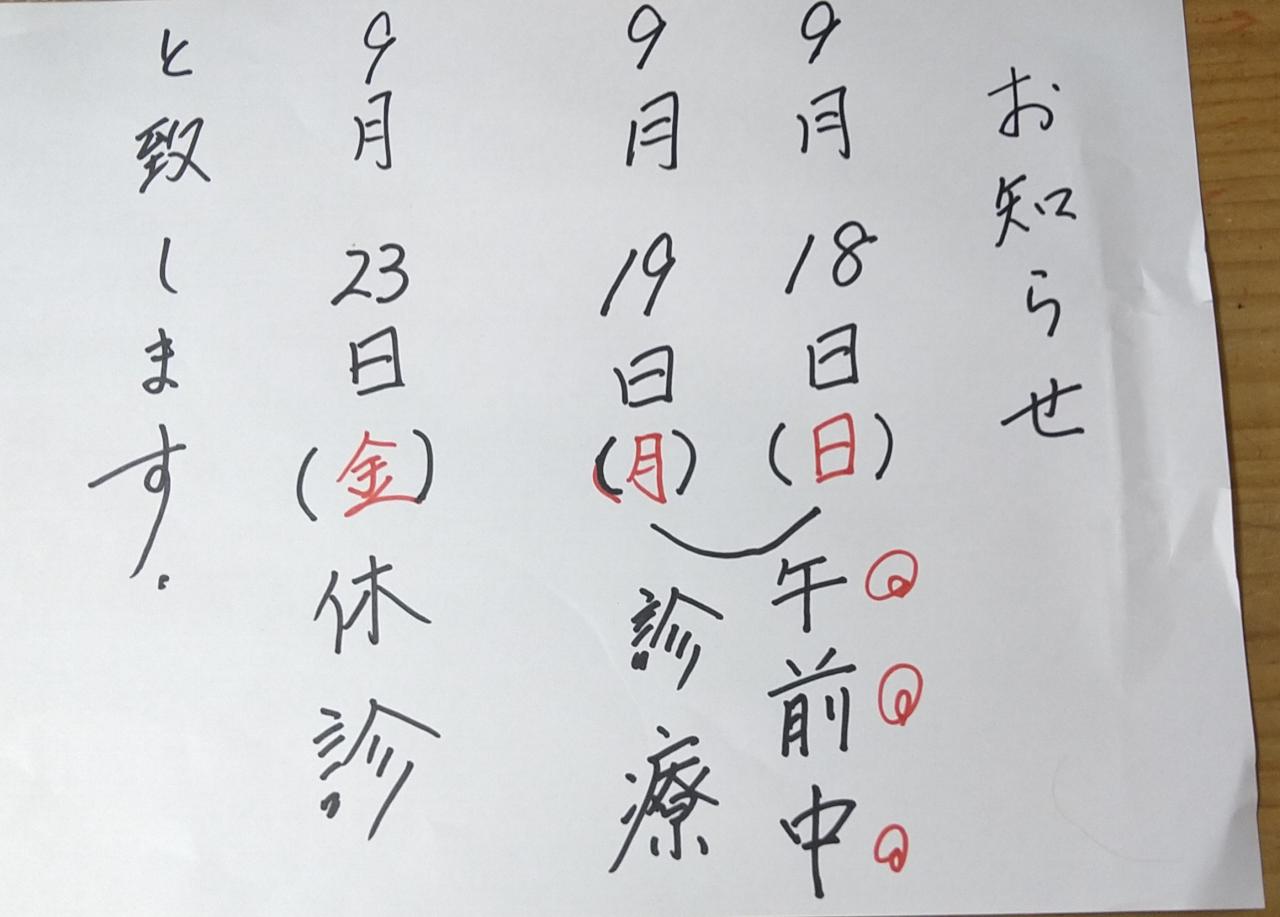 お知らせ
9月18日(日)午前中
9月19日(月)診療
9月23日(金)休診
と致します。